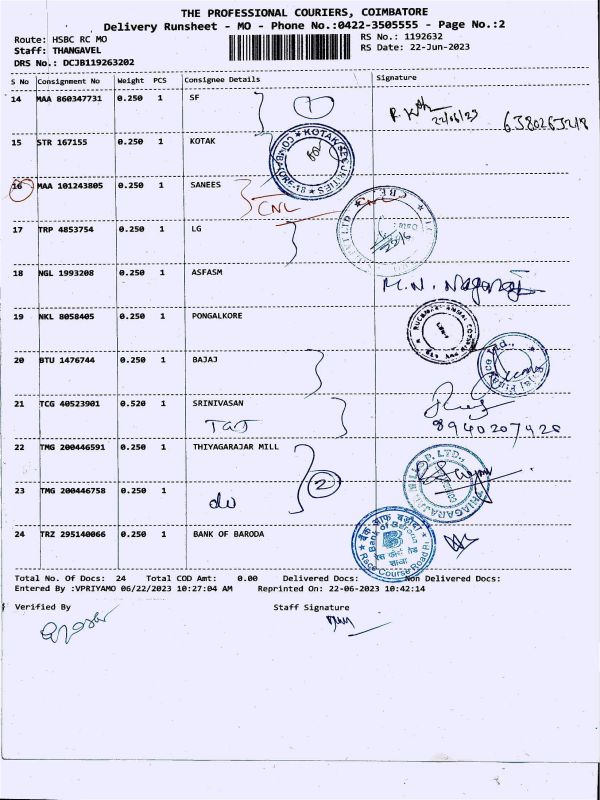 THE PROFESSIONAL COURIERS, COIMBATORE
Delivery Runsheet - MO - Phone No.:0422-3505555 - Page No.:2
Route: HSBC RC MO RS No.: 1192632
Staff: THANGAVEL RS Date: 22-Jun-2023
DRS No.: DCJB119263202
S No Consignment No Weight PCS Consignee Details Signature
14 MAA 860347731 0.250 1 SF 7 22/06/23 6380263218
15 STR 167155 0.250 1 KOTAK
KOTAK SECURITIES COIMBATORE-18
16 MAA 101243805 0.250 1 SANEES
CNL CNL
17 TRP 4853754 0.250 1 LG
18 NGL 1993208 0.250 1 ASFASM
M.N. Nagaraj
19 NKL 8058405 0.250 1 PONGALKORE
20 BTU 1476744 0.250 1 BAJAJ
21 TCG 40523901 0.520 1 SRINIVASAN
8940207426
22 TMG 200446591 0.250 1 THIYAGARAJAR MILL
2
23 TMG 200446758 0.250 1
do
24 TRZ 295140066 0.250 1 BANK OF BARODA
बैंक ऑफ बड़ौदा
Bank of Baroda
रेस कोर्स रोड शाखा
Race Course Road Br
Total No. Of Docs: 24 Total COD Amt: 0.00 Delivered Docs: Non Delivered Docs:
Entered By :VPRIYAMO 06/22/2023 10:27:04 AM Reprinted On: 22-06-2023 10:42:14
Verified By Staff Signature